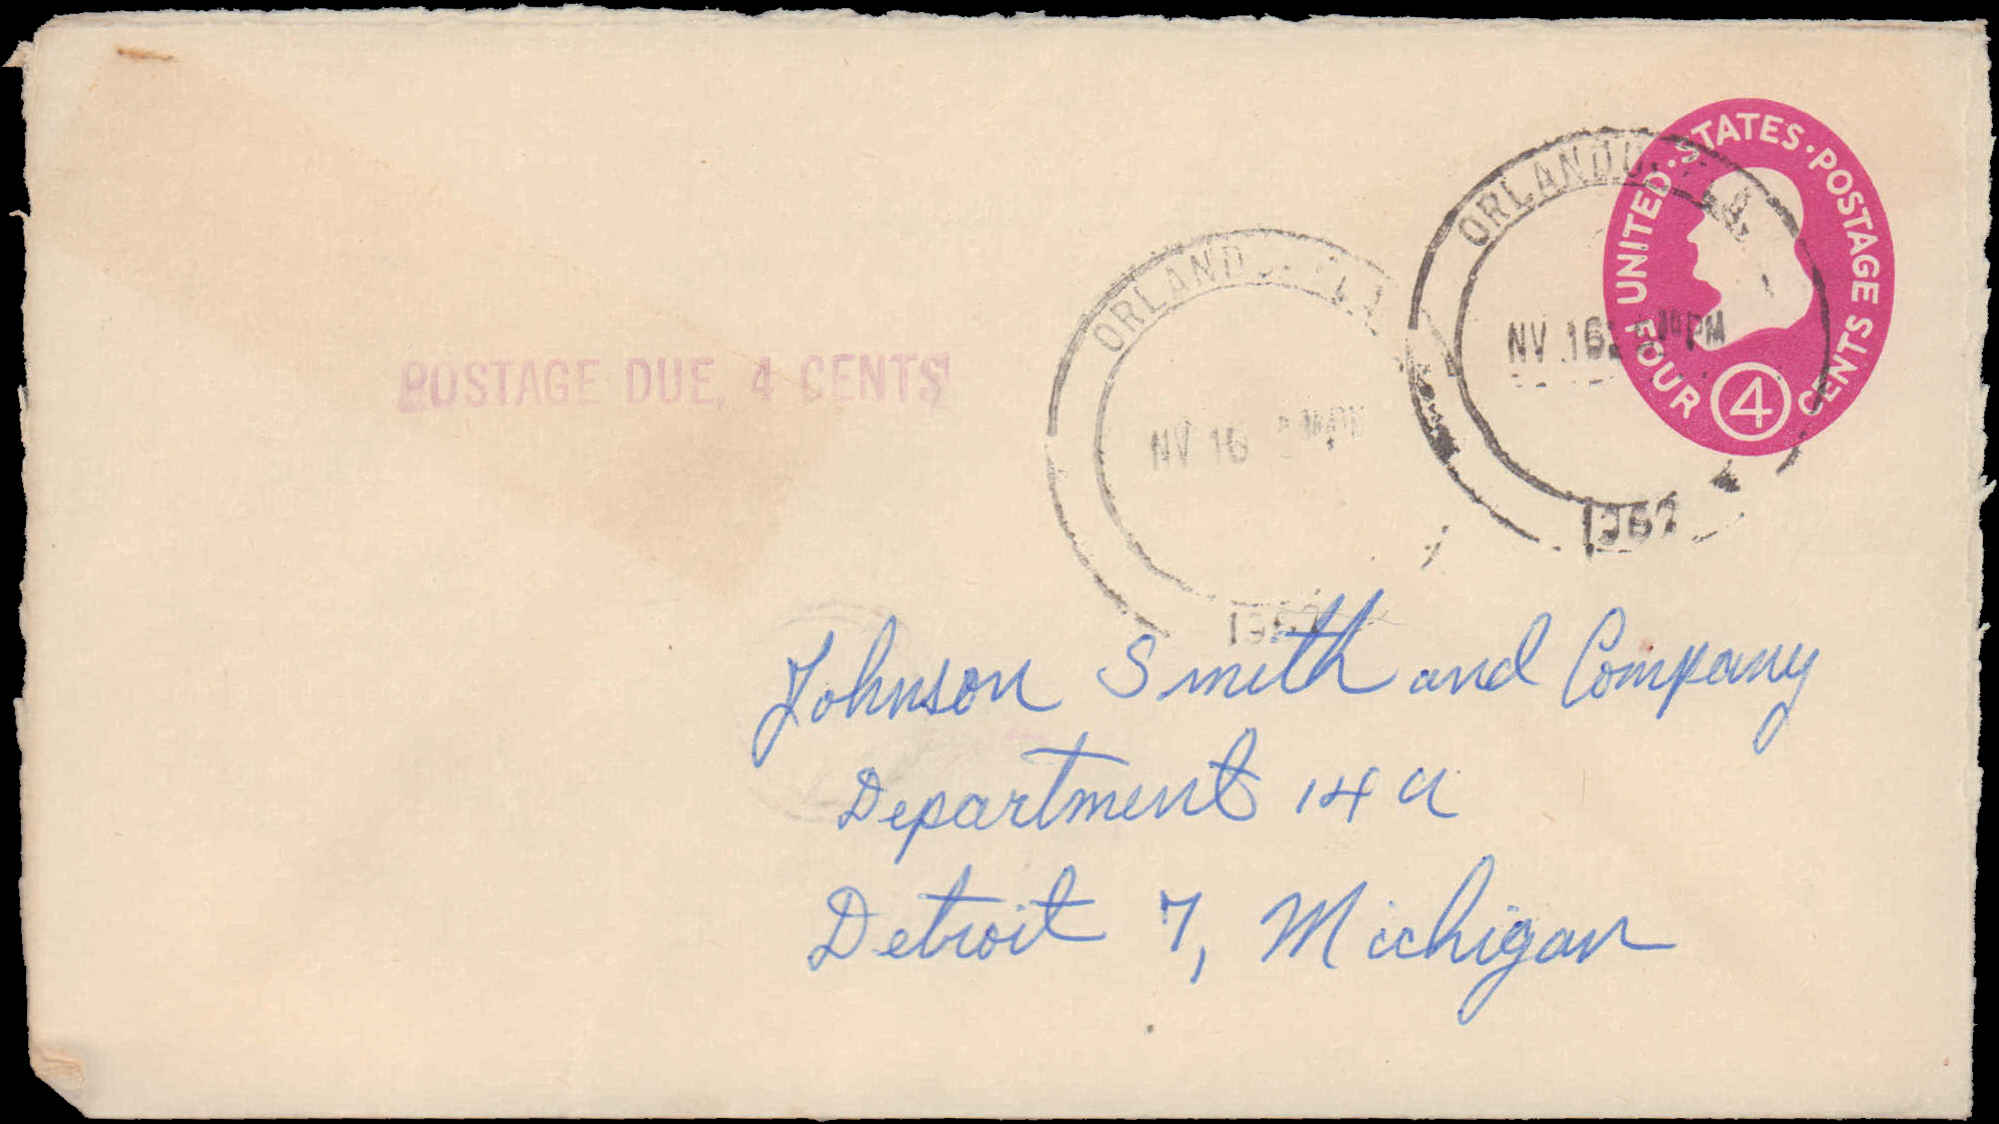 UNITED · STATES · POSTAGE
FOUR 4 CENTS
ORLANDO, FLA.
NV 16 PM
1962
ORLANDO, FLA.
NV 16 PM
1962
POSTAGE DUE, 4 CENTS
Johnson Smith and Company
Department 14 a
Detroit 7, Michigan